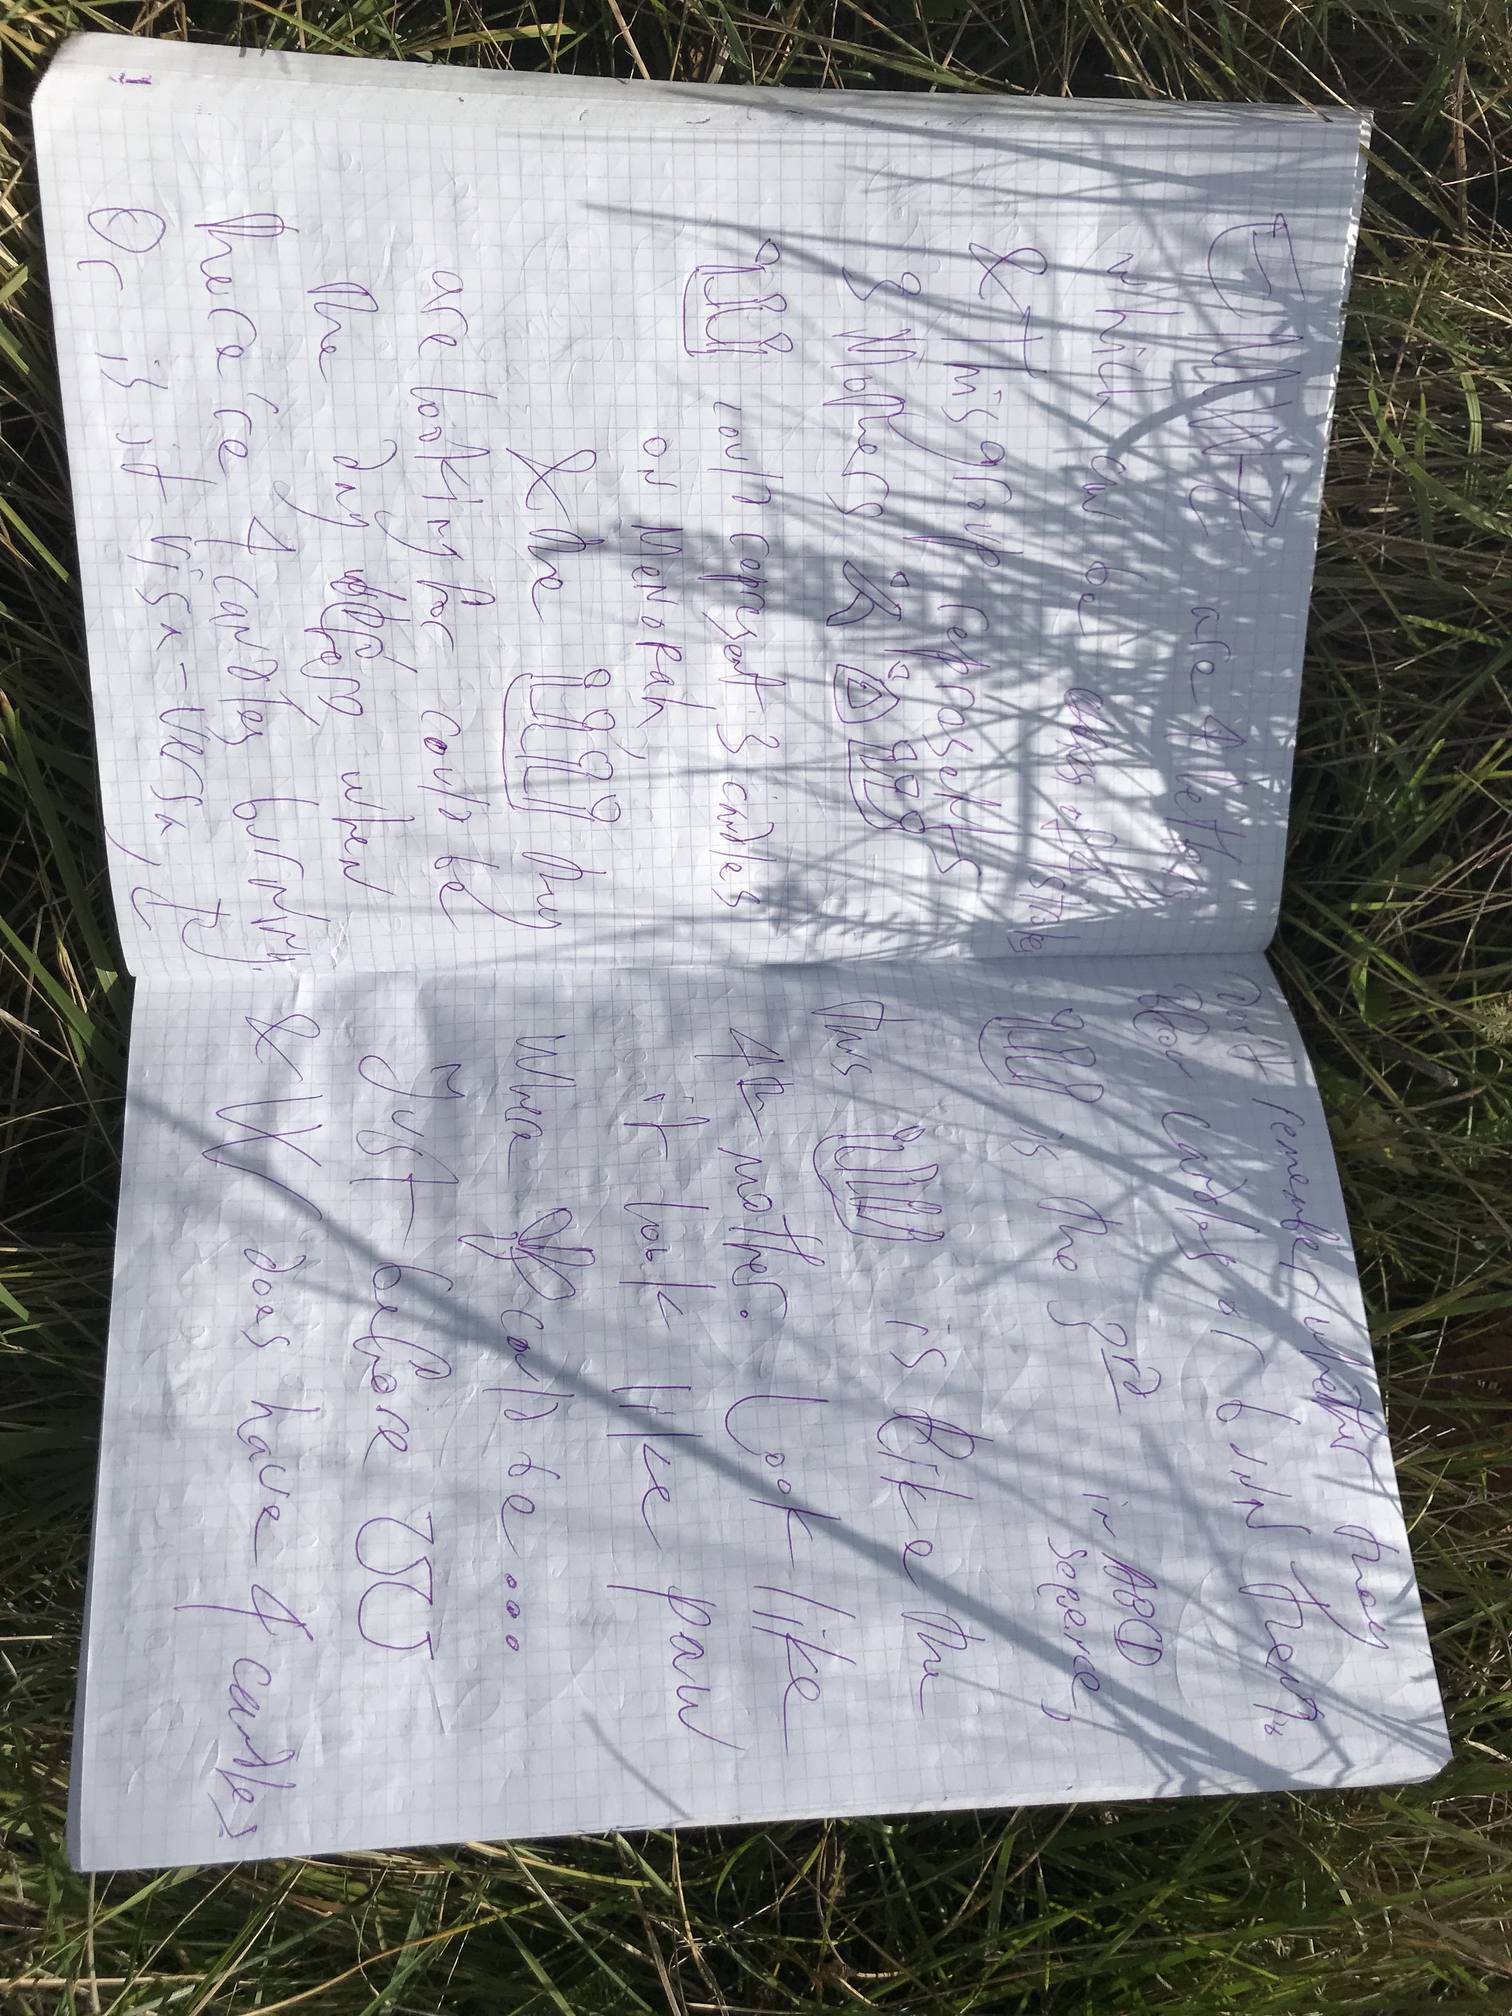 are 4 letters
which can be
& This group represents
3 Mophers
could represent 3 candles
on Menorah
& the
they
are looking for could be
the day before when
there're 4 candles burning.
Or is it visa-versa,
Don't remember whether they
Blow candles or
is the 3rd
in ABCD
seqence,
This is like the
4th mother. Look like
it look like paw
Where could be...
just before
& W does have 4 candles